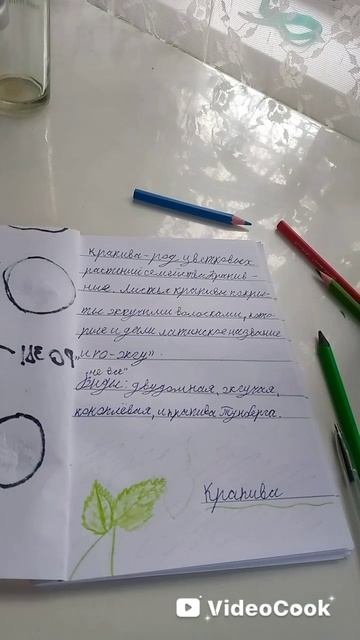 Крапива - род цветковых
растений семейства Крапив-
ные. Листья крапивы покры-
ты жгучими волосками, кото-
рые и дали латинское название
"и по-жгу".
"не все"
Виды: двудомная, жгучая,
коноплевая, и крапива Тунберга.
Крапива
VideoCook